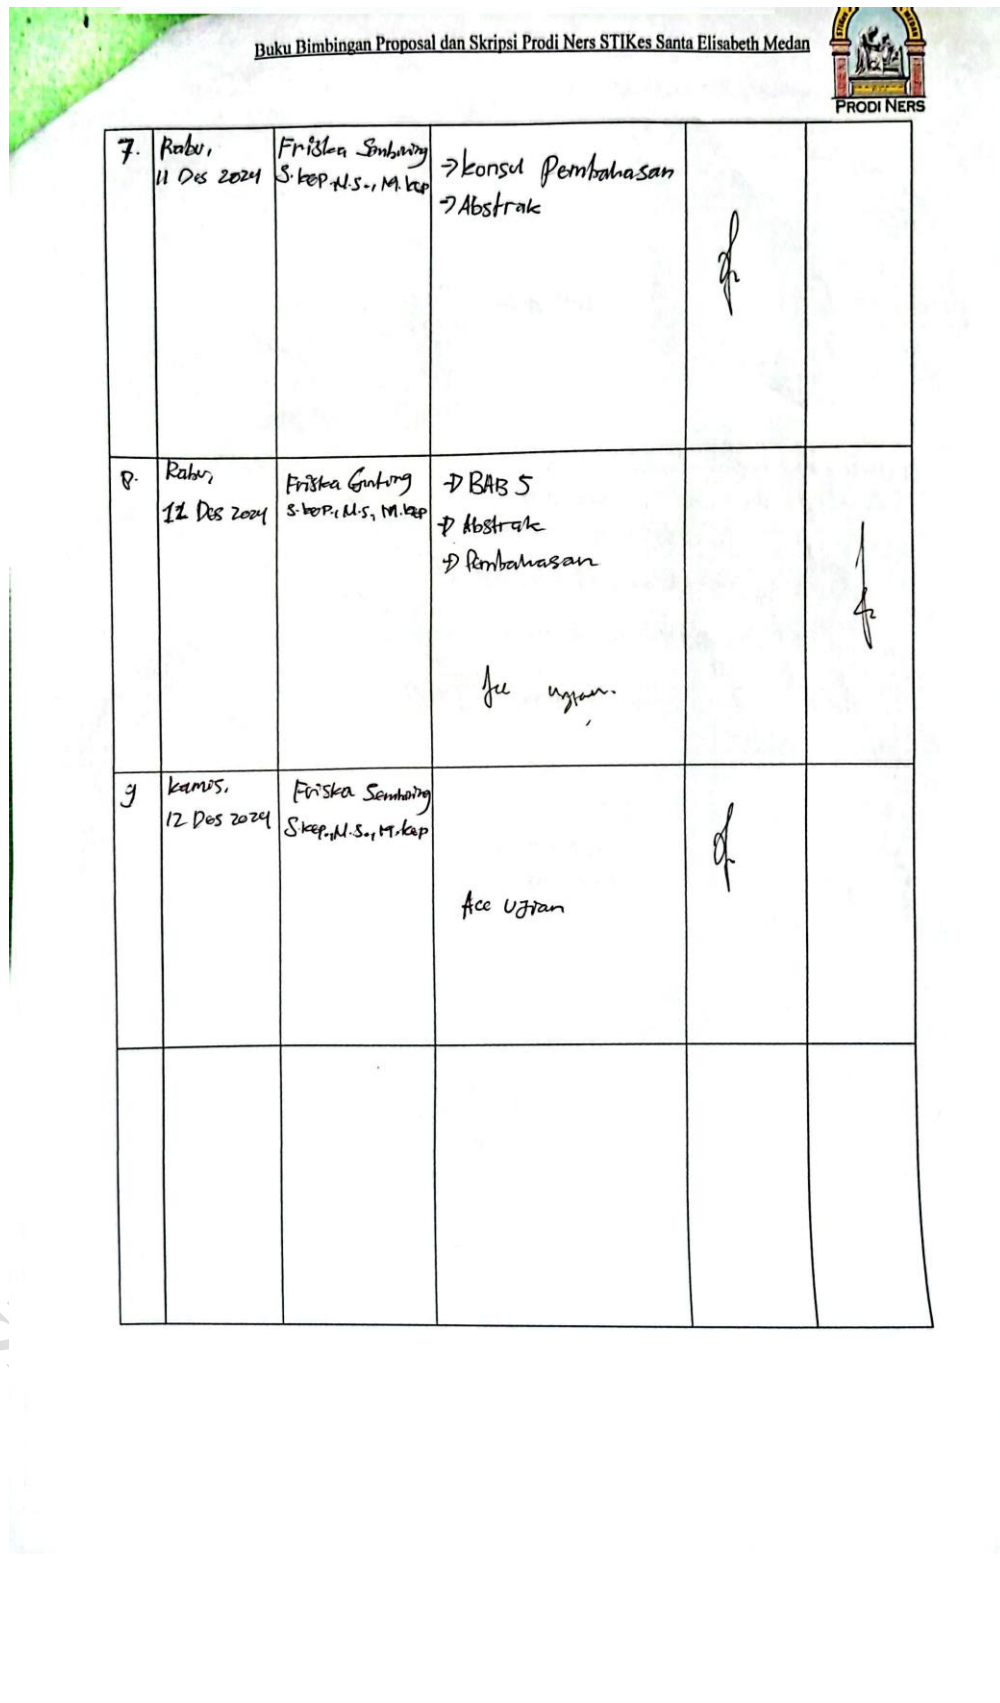 Buku Bimbingan Proposal dan Skripsi Prodi Ners STIKes Santa Elisabeth Medan
PRODI NERS
7.
Rabu,
11 Des 2024
Friska Sembiring
S.kep.,N.S., M.kep
→ konsul Pembahasan
→ Abstrak
8.
Rabu,
11 Des 2024
Friska Ginting
S.kep., N.S, M.kep
→ BAB 5
→ Abstrak
→ Pembahasan
Acc ujian.
9
kamis,
12 Des 2024
Friska Sembiring
Skep.,N.S., M.kep
Acc Ujian